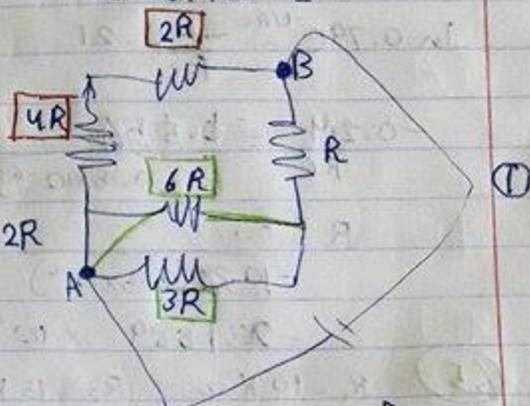 2R
B
4R
R
6R
2R
A
3R
①